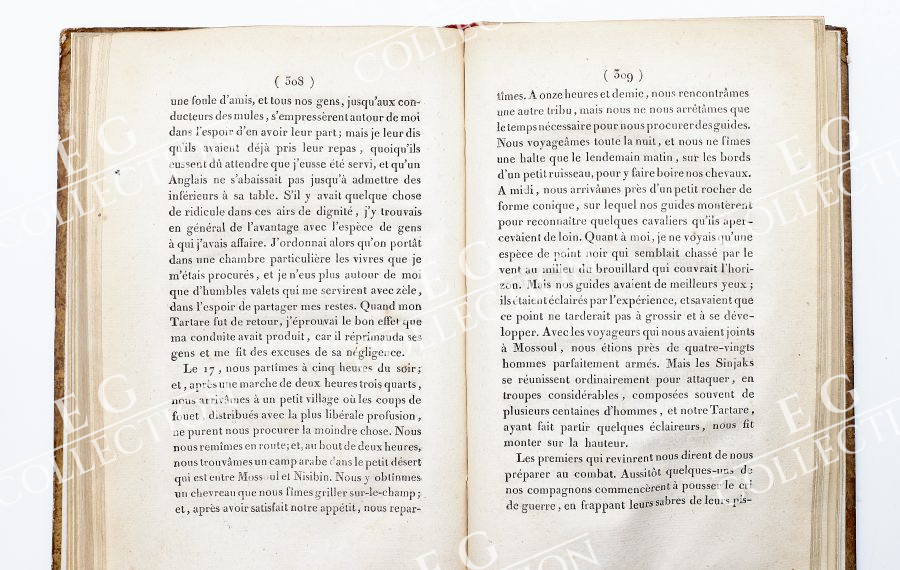 ( 308 )
une foule d'amis, et tous nos gens, jusqu'aux con-
ducteurs des mules, s'empressèrent autour de moi
dans l'espoir d'en avoir leur part; mais je leur dis
qu'ils avaient déjà pris leur repas, quoiqu'ils
eussent dû attendre que j'eusse été servi, et qu'un
Anglais ne s'abaissait pas jusqu'à admettre des
inférieurs à sa table. S'il y avait quelque chose
de ridicule dans ces airs de dignité, j'y trouvais
en général de l'avantage avec l'espèce de gens
à qui j'avais affaire. J'ordonnai alors qu'on portât
dans une chambre particulière les vivres que je
m'étais procurés, et je n'eus plus autour de moi
que d'humbles valets qui me servirent avec zèle,
dans l'espoir de partager mes restes. Quand mon
Tartare fut de retour, j'éprouvai le bon effet que
ma conduite avait produit, car il réprimanda ses
gens et me fit des excuses de sa négligence.
Le 17, nous partîmes à cinq heures du soir;
et, après une marche de deux heures trois quarts,
nous arrivâmes à un petit village où les coups de
fouet, distribués avec la plus libérale profusion,
ne purent nous procurer la moindre chose. Nous
nous remîmes en route; et, au bout de deux heures,
nous trouvâmes un camp arabe dans le petit désert
qui est entre Mossoul et Nisibin. Nous y obtînmes
un chevreau que nous fîmes griller sur-le-champ;
et, après avoir satisfait notre appétit, nous repar-
( 309 )
tîmes. A onze heures et demie, nous rencontrâmes
une autre tribu, mais nous ne nous arrêtâmes que
le temps nécessaire pour nous procurer des guides.
Nous voyageâmes toute la nuit, et nous ne fîmes
une halte que le lendemain matin, sur les bords
d'un petit ruisseau, pour y faire boire nos chevaux.
A midi, nous arrivâmes près d'un petit rocher de
forme conique, sur lequel nos guides montèrent
pour reconnaître quelques cavaliers qu'ils aper-
cevaient de loin. Quant à moi, je ne voyais qu'une
espèce de point noir qui semblait chassé par le
vent au milieu du brouillard qui couvrait l'hori-
zon. Mais nos guides avaient de meilleurs yeux;
ils étaient éclairés par l'expérience, et savaient que
ce point ne tarderait pas à grossir et à se déve-
lopper. Avec les voyageurs qui nous avaient joints
à Mossoul, nous étions près de quatre-vingts
hommes parfaitement armés. Mais les Sinjaks
se réunissent ordinairement pour attaquer, en
troupes considérables, composées souvent de
plusieurs centaines d'hommes, et notre Tartare,
ayant fait partir quelques éclaireurs, nous fit
monter sur la hauteur.
Les premiers qui revinrent nous dirent de nous
préparer au combat. Aussitôt quelques-uns de
nos compagnons commencèrent à pousser le cri
de guerre, en frappant leurs sabres de leurs pis-